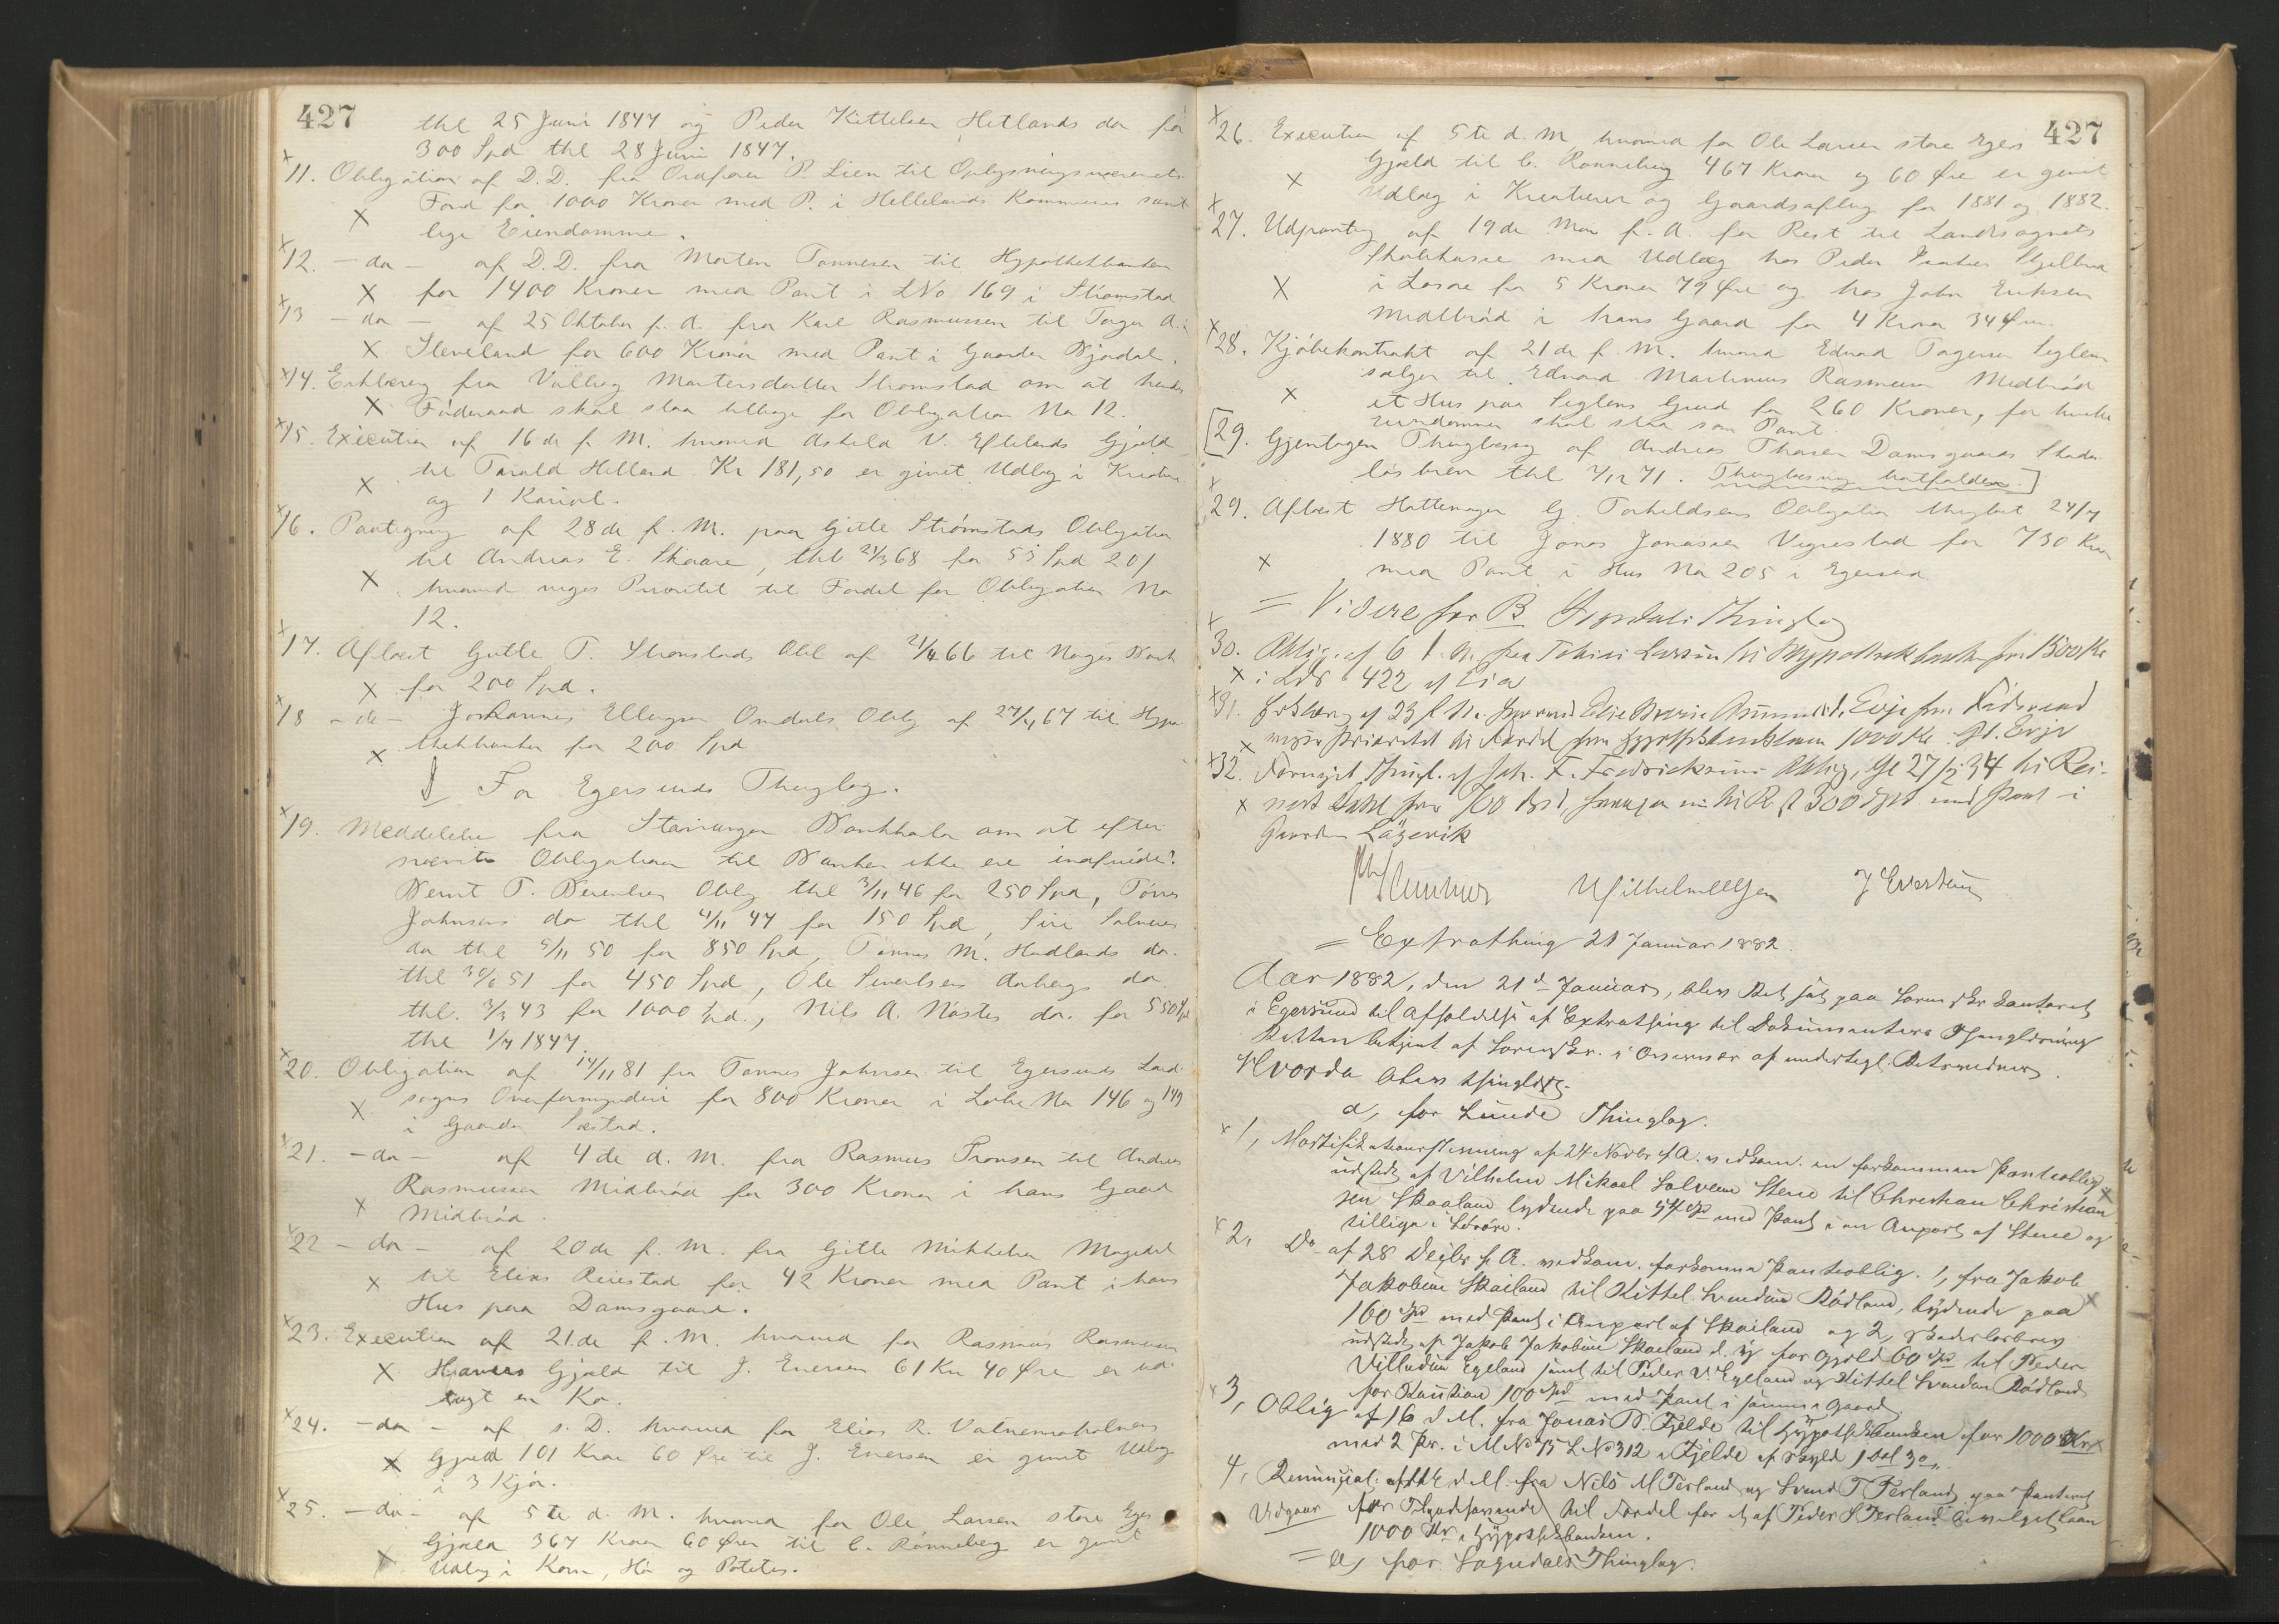 427
thl 25 Juni 1847 og Peder Kittelsen Hetlands do for
300 Spd thl 28 Juni 1847.
11. Obligation af D.D. fra Ordfører P. Lien til Oplysningsvæsenets
Fond for 1000 Kroner med P. i Hellelands Kommunes samt
lige Eiendomme.
12. - do - af D.D. fra Morten Tønnesen til Hypothekbanken
for 1400 Kroner med Pant i LNo 169 i Strømstad
13 - do - af 25 Oktober f. A. fra Karl Rasmussen til Torger A.
Sleveland for 600 Kroner med Pant i Gaarden Bjordal.
14. Erklæring fra Valborg Mortensdatter Strømstad om at hendes
Føderaad skal staa tilbage for Obligation No 12.
15. Execution af 16de f. M. hvorved Askild V. Eftelands Gjæld
til Tarald Helland Kr 181,50 er givet Udlæg i Kreature
og 1 Kariol.
16. Paategning af 28de f. M. paa Gitle Strømstads Obligation
til Andreas E. Skaare, thl 21/3 68 for 55 Spd 20 /
hvorved viges Prioritet til Fordel for Obligation No
12.
17. Aflæst Gitle T. Strømstads Obl af 21/4 66 til Norges Bank
for 200 Spd.
18 - do - Johannes Ellingsen Omdals Oblig af 27/4 67 til Hypo
thekbanken for 200 Spd
For Egersunds Thinglag.
19. Meddelelse fra Stavanger Bankkabn om at efter
nævnte Obligationer til Banken ikke ere indfriede:
Bernt T. Berentsens Oblig thl 3/11 46 for 250 Spd, Tørres
Johnsens do thl 4/11 47 for 150 Spd, Siri Salveses
do thl 5/11 50 for 850 Spd, Tønnes M. Hadlands do.
thl 30/6 51 for 450 Spd, Ole Sivertsens Aarbergs do
thl. 3/3 43 for 1000 Spd., Nils A. Nøstes do. for 550 Spd
thl 1/7 1847
20. Obligation af 14/11 81 fra Tønnes Johnsen til Egersunds Land
sogns Overformynderi for 800 Kroner i Løbe No 146 og 149
i Gaarden Sæstad.
21. - do - af 4de d. M. fra Rasmus Tronsen til Andreas
Rasmussen Midbrød for 300 Kroner i hans Gaard
Midbrød.
22 - do - af 20de f. M. fra Gitle Mikkelsen Mogedal
til Elias Reiestad for 42 Kroner med Pant i hans
Hus paa Damsgaard.
23. Execution af 21de f. M. hvorved for Rasmus Rasmussen
Havers Gjæld til J. Eversen 61 Kr 40 Øre er ud
lagt en Ko.
24. - do - af s. D. hvorved for Elias R. Vatnemoholmens
Gjæld 101 Kroner 60 Øre til J. Eversen er givet Udlæg
i 3 Kjør.
25. - do - af 5te d. M. hvorved for Ole Larsen store Eges
Gjæld 367 Kroner 60 Ører til C. Rønneberg er givet
Udlæg i Korn, Hø og Poteter.
427
26. Execution af 5te d. M. hvorved for Ole Larsen store Eges
Gjæld til C. Rønneberg 467 Kroner og 60 Øre er givet
Udlæg i Kreaturer og Gaardsafling for 1881 og 1882.
27. Udpantning af 19de Mai f. A. for Rest til Landsognets
Skolekasse med Udlæg hos Peder
i Løsøre for 5 Kroner 79 Øre og hos John Eriksen
Midtbrød i hans Gaard for 4 Kroner 34 Øre.
28. Kjøbekontrakt af 21de f. M. hvorved Edvard Tagesen Seglem
sælger til Edvard Martinius Rasmussen Midbrød
et Hus paa Seglems Grund for 260 Kroner, for hvilke
Eiendommen skal staa som Pant.
[29. Gjentagen Thinglæsning af Andreas Thorsen Damsgaards Skades
løsbrev thl 7/12 71. Thinglæsning bortfalden.]
29. Aflæst Hattemager G. Torkildsens Obligation thinglæst 24/7
1880 til Jonas Jonassen Vegrestad for 730 Kroner
med Pant i Hus No 205 i Egersund
= Videre for B Sogndals Thinglag
30. Oblig. af 6 d. M. fra Tobias Larsen til Hypothekbanken for 1500 Kr
i LNr 422 af Lia
31. Erklæring af 23 f. M. hvorved Elise Marie Asmundsd. Evje for Føderaad
viger Prioritet til Fordel for Hypothekbanken 1000 Kr. Gd. Evje
32. Fornyet Thingl. af Joh. F. Fredriksens Oblig, thl 27/2 34 til Rei-
nert for 700 Spd, 300 Spd med Pant i
Gaarden Løgevik
Vilhelmsen J Evertsen
= Extrathing 21 Januar 1882.
Aar 1882, den 21de Januar, blev Ret sat paa Sorenskr. kontoret
i Egersund til Afholdelse af Extrathing til Dokumenters Thinglæsning
Retten betjent af Sorenskr. i Overvær af undertegn. Retsvidner.
Hvorda blev thinglæst.
a, for Lunde Thinglag.
1, Mortifikationsstevning af 24 Novbr f A. vedkom. en forkommen Pantoblig.
udstedt af Vilhelm Mikael Salvesen Steene til Christian Christian
sen Skaaland lydende paa 54 Spd med Pant i en Anpart af Steene og
tillige i Løsøre.
2, Do af 28 Decbr f. A. vedkom. forkomne Pantoblig. 1, fra Jakob
Jakobsen Skailand til Kittel Svendsen Rødland, lydende paa
160 Spd med Pant i Anpart af Skailand og 2, Skadesløsbrev
udstedt af Jakob Jakobsen Skaeland d. y. for Gjæld 60 Spd til Peder
Villadsen Egeland samt til Peder V. Egeland og Kittel Svendsen Rødland
for Kaution 100 Spd med Pant i samme Gaard.
3, Oblig af 16 d M. fra Jonas B. Fjelde til Hypothekbanken for 1000 Kr
med 2 Pr. i M No 75 L No 312 Fjelde af Skyld 1 Dal 3 o.
4, Renunciat. af d M. fra Nils M Terland og Svend T Terland paa Panteret
Udgaar for Thordhavende til Fordel for et af Peder S Terland bevilget Laan
1000 Kr i Hypothekbanken.
= b, for Sogndals Thinglag.